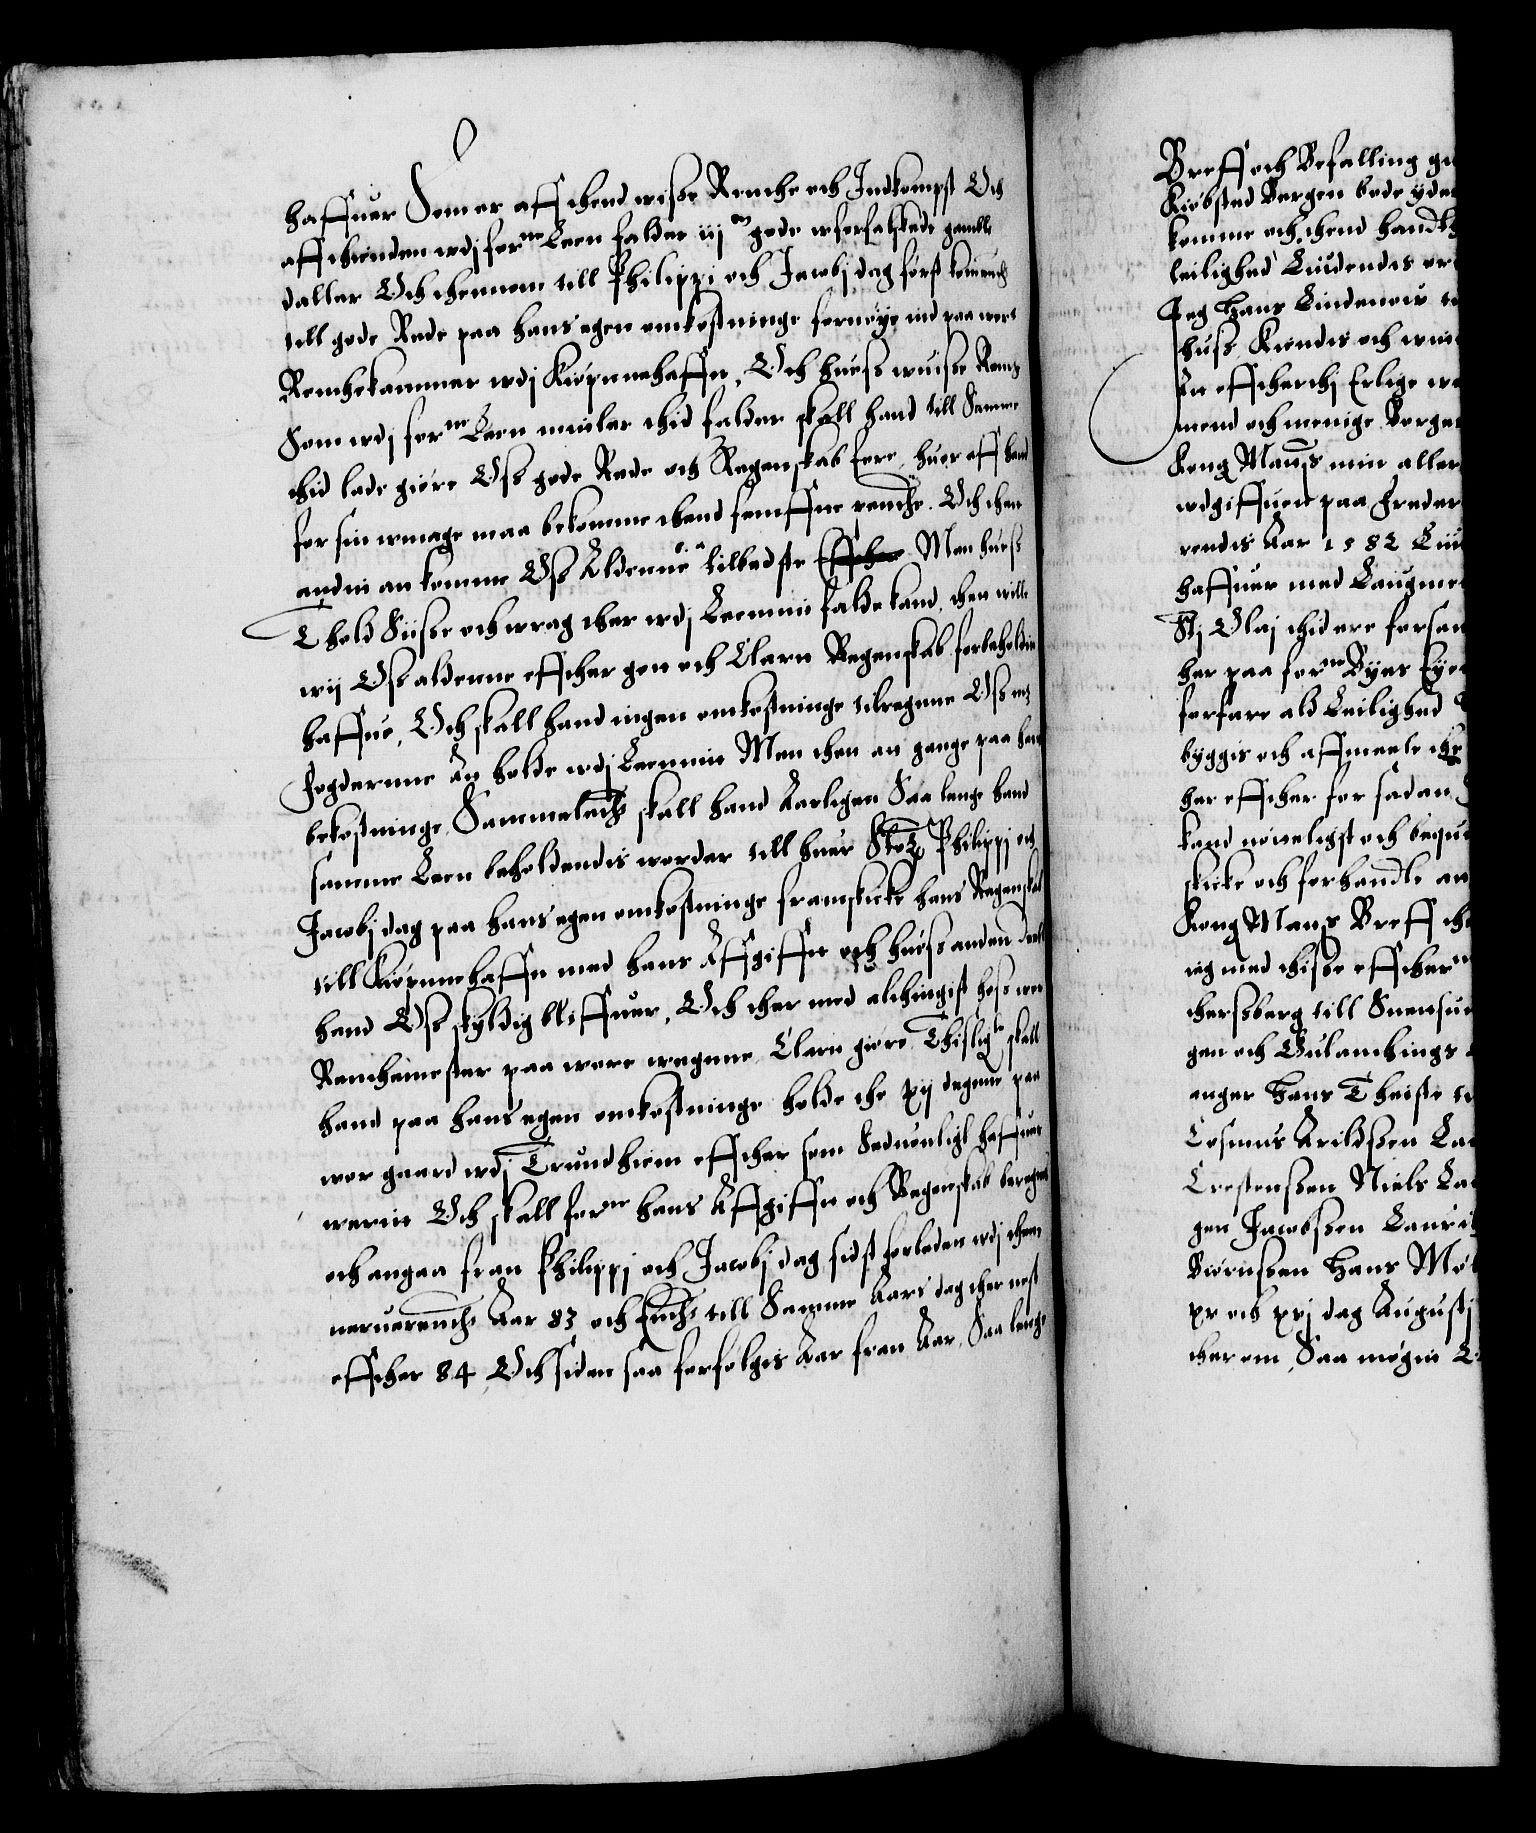 haffuer Som er aff thend wisse Renthe och Jndkompst Och
aff thienden wdj forne Leen falder iij gode wforfalskede gamble
daller Och thennom till Philippi och Jacobj dag først
till gode Rede paa hans egen omkostninge fornøye ind paa wort
Renthekammer wdj Kiøpnnehaffn, Och huess wuisse Renthe
Som wdj forne Leen midler thid falder skall hand till Samme
thid lade giøre Oss gode Rede och Regenskab fore, huor aff hand
for sin wmage maa bekomme thend femffte pending. Och then
anden an komme Oss Aldenne tilbedste Men huess
Thold Siisse och wrag ther wdj Leennit falde kand, then wille
wij Oss aldenne effther gen och Clare Regenskab forbeholdit
haffue, Och skall hand ingen omkostninge tilregnne Oss
fogderne An holde wdj Leennit Men then an gange paa hans
bekostninge Sammeledis skall hand Aarligen Saa lenge hand
samme Leen beholdendis worder till huer Philippj och
Jacobj dag paa hans egen omkostninge fremskicke hans Regenskab
till Kiøpnnehaffn med hans Affgifft och huess anden deel
hand Oss skyldig bliffuer, Och ther med altingist hoss wor
Rentemester paa wore wegnne Clarit giøre Thisligiste skall
hand paa hans egen omkostninge holde the xij degnne paa
wor gaard wdj Trundhiem effther som Seduonligt haffuer
werit Och skall forne hans Affgifft och Regenskab beregnis
och angaa fran Philippj och Jacobj dag sidst forleden wdj thette
neruerendis Aar 83 och Endis till Samme Aars dag ther nest
effther 84, Och siden saa forfølgis Aar fran Aar, Saa lenge
Breff och Befalling
Kiøbsted Bergen bode
komme och thend
leilighed Liudendis
Jeg Hans Lindenow
huss Kiendis och
An effther thj Erlige
mend och menige Borger
Kong Mats min aller
wdgiffuen paa Freder
rendis Aar 1582
haffuer med Laugmend
Stj Olaj thid ere forsam
her paa forne Byes
forfare ald Leilighed
byggis och affmaale
her effther for sadan
kand nøieligst och
skicke och forhandle
Kong Mats Breff
ieg med thisse effther
thersberg till
gen och Gulanthings
anger Hans Theiste
Cosmus Arildssen
Crestenssen Niels
gen Jacobssen Laurits
Biørnssen Hans
xx och xxj dag Augustj
ther om, Saa møgit